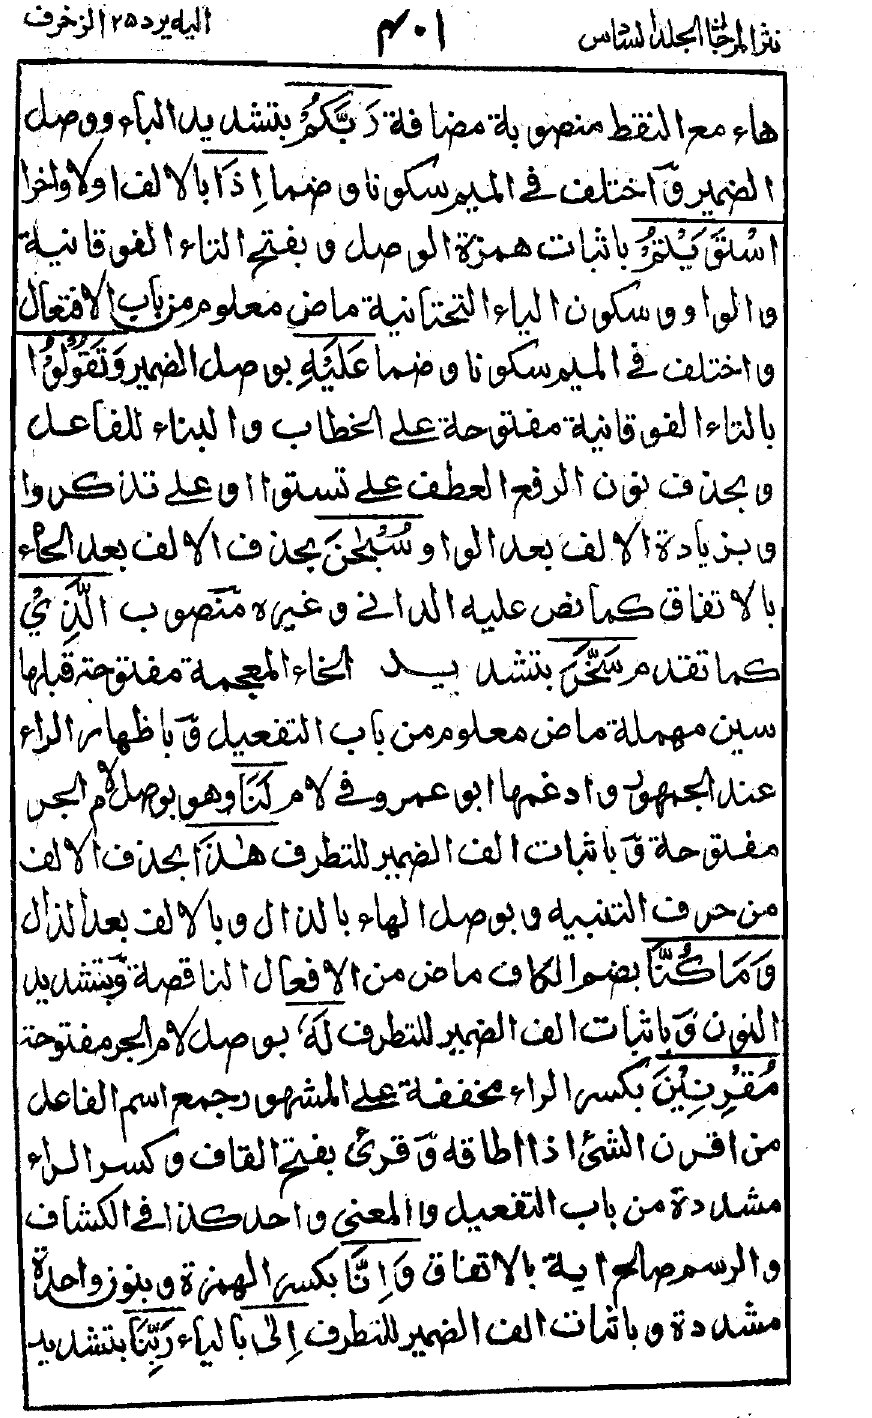 نثر المرجان الجلد السادس ۴۰۱ اليه يرد ۲۵ الزخرف
هاء مع النقط منصوبة مضافة رَبِّكُمْ بتشديد الباء ووصل
الضمير وٓ اختلف في الميم سكونا وضما إِذَا بالالف اولا واخرا
اسْتَوَيْتُمْ باثبات همزة الوصل وبفتح التاء الفوقانية
والواو وسكون الياء التحتانية ماض معلوم من باب الافتعال
واختلف في الميم سكونا وضما عَلَيْهِ بوصل الضمير وَتَقُولُوْا
بالتاء الفوقانية مفتوحة على الخطاب والبناء للفاعل
وبحذف نون الرفع العطف على تستوا او على تذكروا
وبزيادة الالف بعد الواو سُبْحٰنَ بحذف الالف بعد الحاء
بالاتفاق كما نص عليه الداني وغيره منصوب الَّذِيْ
كما تقدم سَخَّرَ بتشديد الخاء المعجمة مفتوحة قبلها
سين مهملة ماض معلوم من باب التفعيل وٓ باظهار الراء
عند الجمهور وادغمها ابو عمرو في لام لَنَا وهو بوصل لام الجر
مفتوحة وٓ باثبات الف الضمير للتطرف هٰذَا بحذف الالف
من حرف التنبيه وبوصل الهاء بالذال وبالالف بعد الذال
وَمَا كُنَّا بضم الكاف ماض من الافعال الناقصة وٓ بتشديد
النون وٓ باثبات الف الضمير للتطرف لَهٗ بوصل لام الجر مفتوحة
مُقْرِنِيْنَ بكسر الراء مخففة على المشهور جمع اسم الفاعل
من اقرن الشئ اذا اطاقه وٓ قرئ بفتح القاف وكسر الراء
مشددة من باب التفعيل والمعنى واحد كذا في الكشاف
والرسم صالح اية بالاتفاق وَاِنَّا بكسر الهمزة وبنون واحدة
مشددة وباثبات الف الضمير للتطرف اِلٰى بالياء رَبِّنَا بتشديد